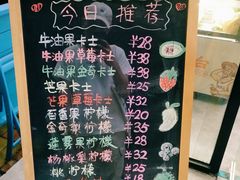 今日推荐
牛油果卡士 ¥28
牛油果草莓卡士 ¥38
牛油果金奇卡士 ¥38
芒果卡士 ¥25
芒果草莓卡士 ¥32
百香果柠檬 ¥20
金奇梨柠檬 ¥35
莲雾果柠檬 ¥28
杨桃梨柠檬 ¥32
桃柠檬